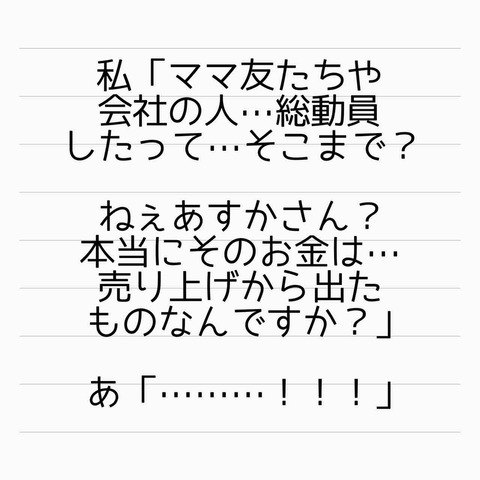 私「ママ友たちや
会社の人…総動員
したって…そこまで？
ねぇあすかさん？
本当にそのお金は…
売り上げから出た
ものなんですか？」
あ「………！！！」